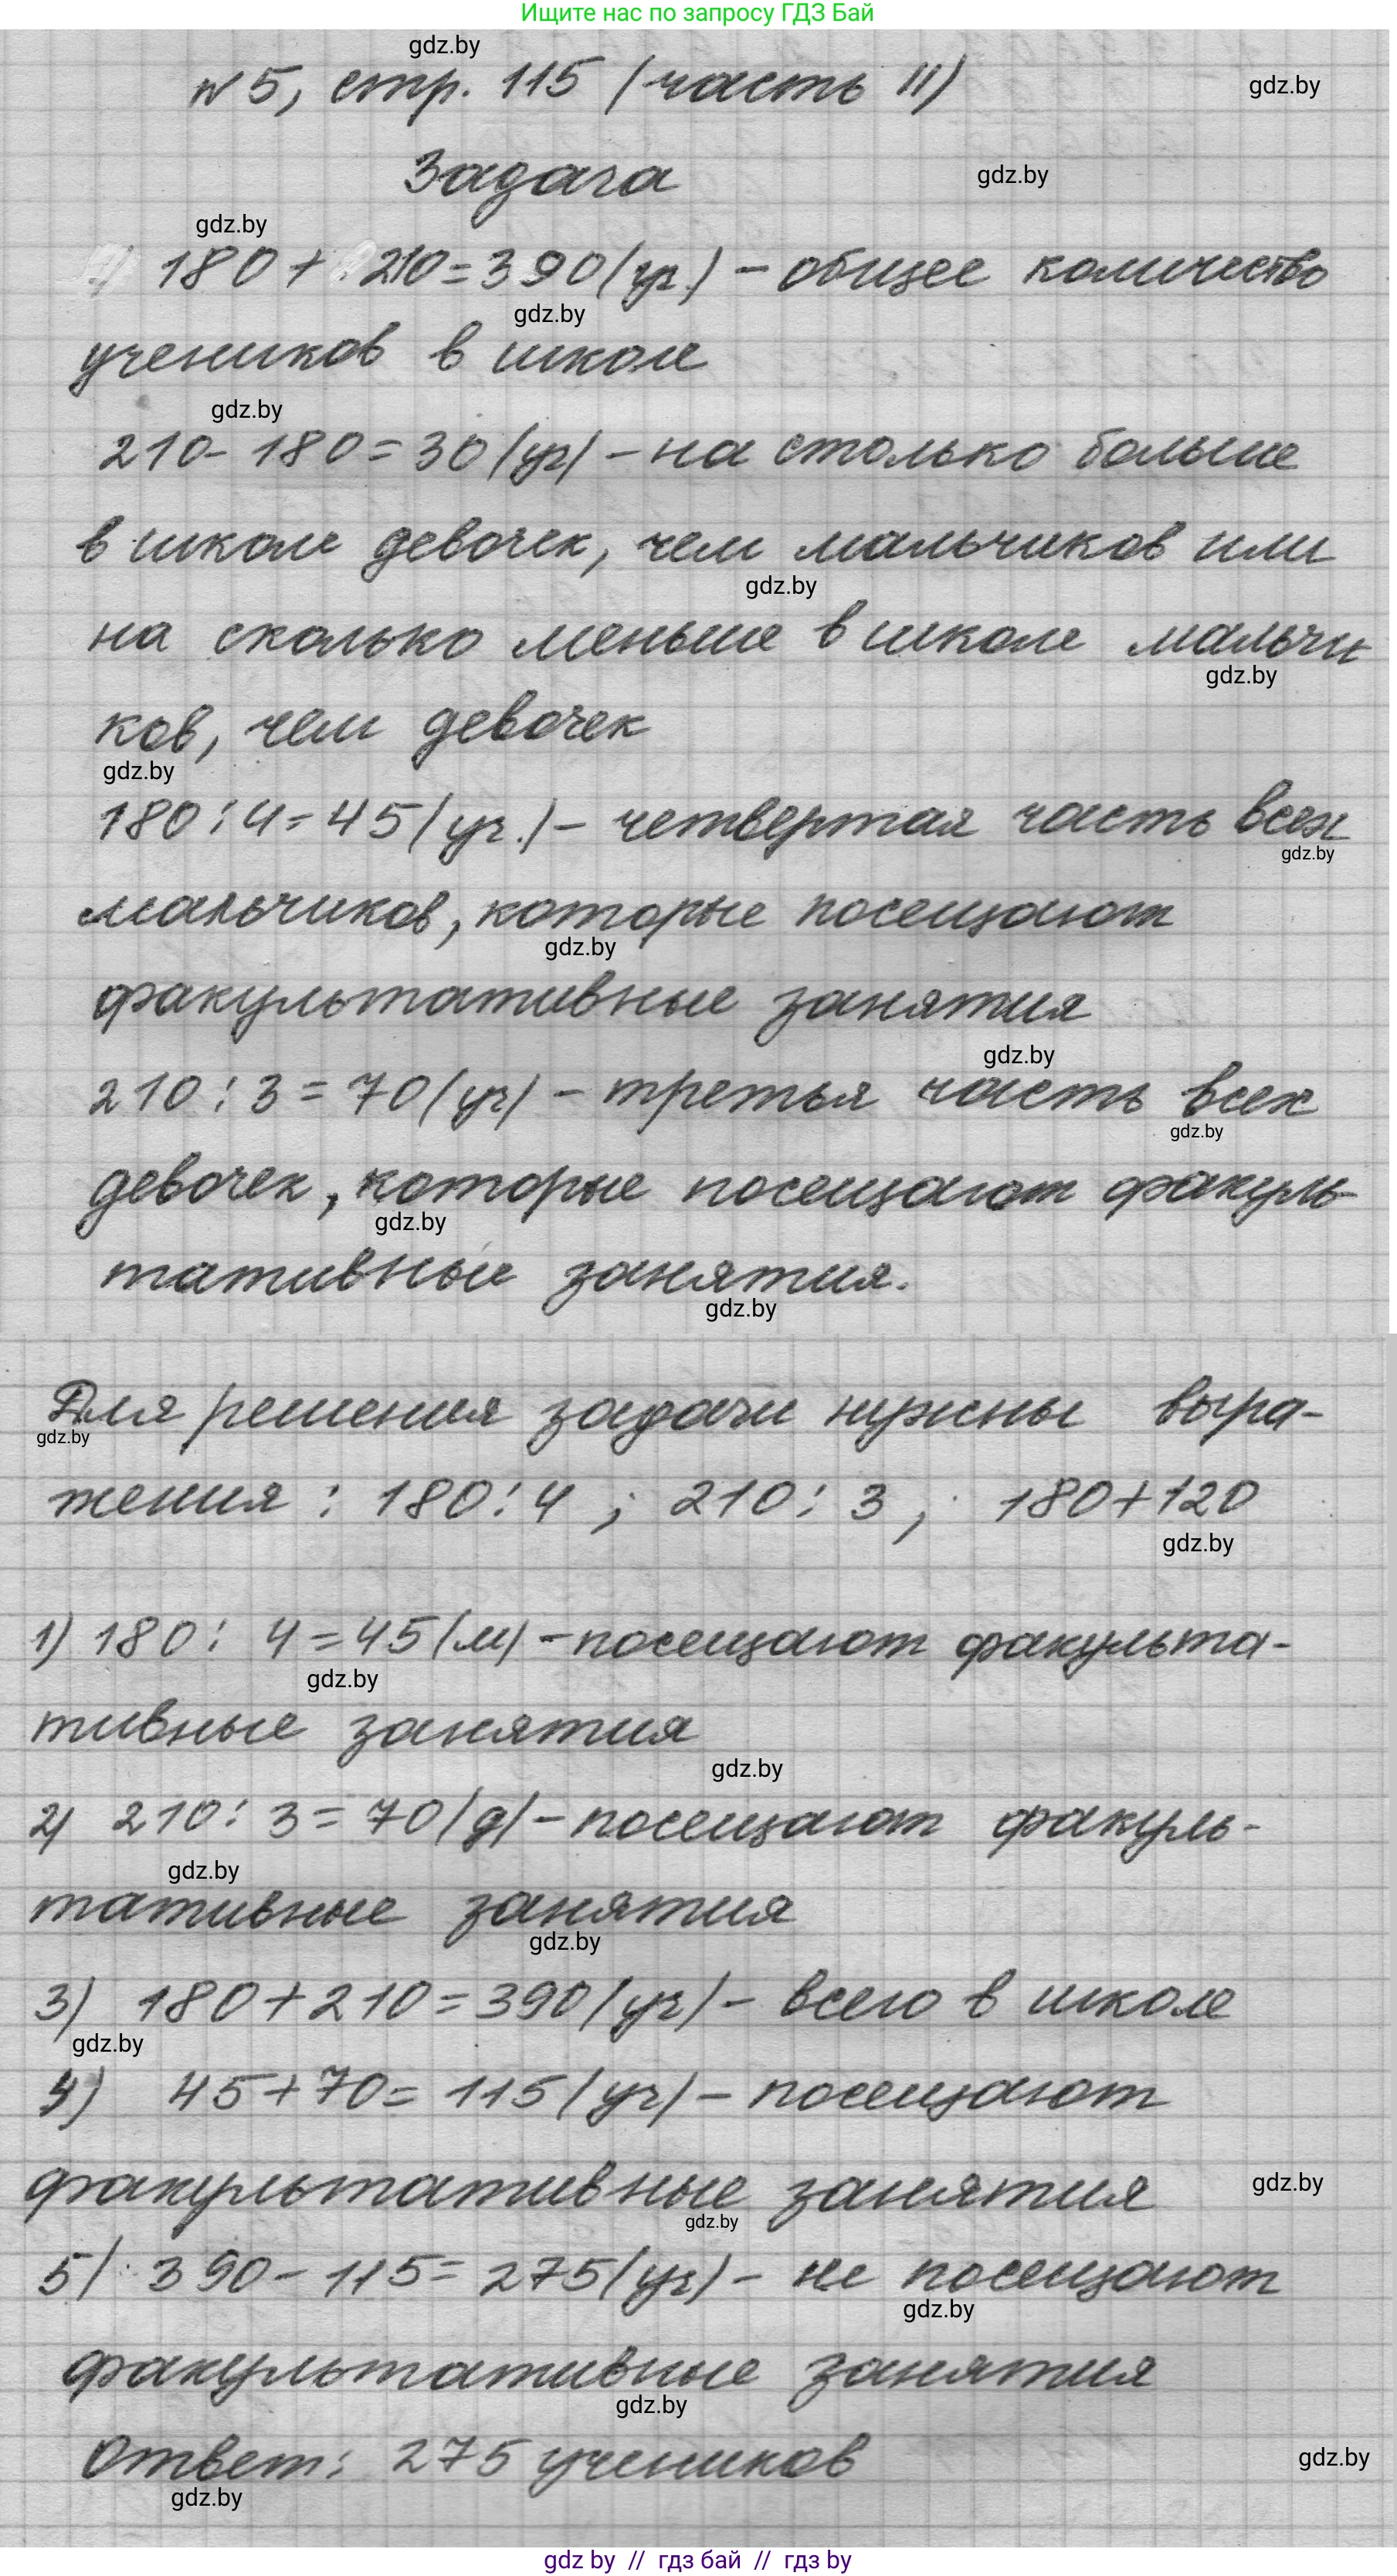 Ищите нас по запросу ГДЗ Бай
gdz.by
№5, стр. 115 (часть II)
gdz.by
Задача
gdz.by
gdz.by
180 + 210 = 390 (уч.) - общее количество
gdz.by
учеников в школе
gdz.by
210 - 180 = 30 (уч) - на столько больше
в школе девочек, чем мальчиков или
gdz.by
на сколько меньше в школе мальчи
gdz.by
ков, чем девочек
gdz.by
180 : 4 = 45 (уч.) - четвертая часть всех
gdz.by
мальчиков, которые посещают
gdz.by
факультативные занятия
gdz.by
210 : 3 = 70 (уч) - третья часть всех
gdz.by
девочек, которые посещают факуль-
gdz.by
тативные занятия.
gdz.by
Для решения задачи нужны выра-
gdz.by
жения : 180 : 4 ; 210 : 3 ; 180 + 120
gdz.by
1) 180 : 4 = 45 (м) - посещают факульта-
gdz.by
тивные занятия
gdz.by
2) 210 : 3 = 70 (д) - посещают факуль-
gdz.by
тативные занятия
gdz.by
3) 180 + 210 = 390 (уч) - всего в школе
gdz.by
4) 45 + 70 = 115 (уч) - посещают
факультативные занятия
gdz.by
gdz.by
5) 390 - 115 = 275 (уч) - не посещают
gdz.by
факультативные занятия
gdz.by
Ответ: 275 учеников
gdz.by
gdz.by
gdz by // гдз бай // гдз by